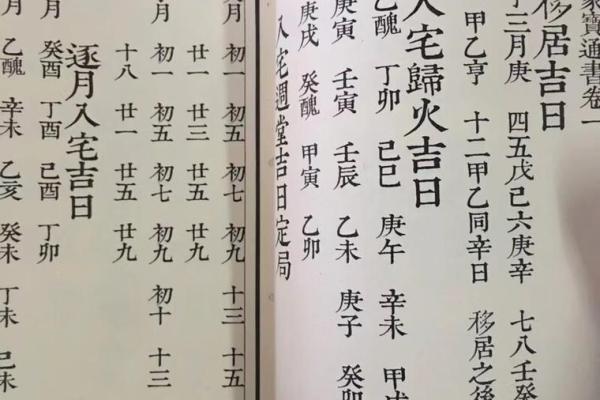 家寶通書卷一
移居吉日
三月庚 四五戊己六庚辛 七八壬癸
甲乙亨 十二甲乙同辛日 移居之後
入宅歸火吉日
乙醜 丁卯 己巳 庚午 辛未 甲戌
庚寅 壬寅 壬辰 乙未 庚子 癸卯
庚戌 癸醜 甲寅 乙卯
入宅週堂吉日定局
月 初一 初五 初七 初九 十三 十五
廿一 廿三 廿五 廿九
月 初一 初五 初七 初九 初十 十三
十八 廿一 廿五 廿九
逐月入宅吉日
月 癸酉 丁酉 己酉 丁卯
月 乙醜 辛未 乙亥 癸未 丁未 己未